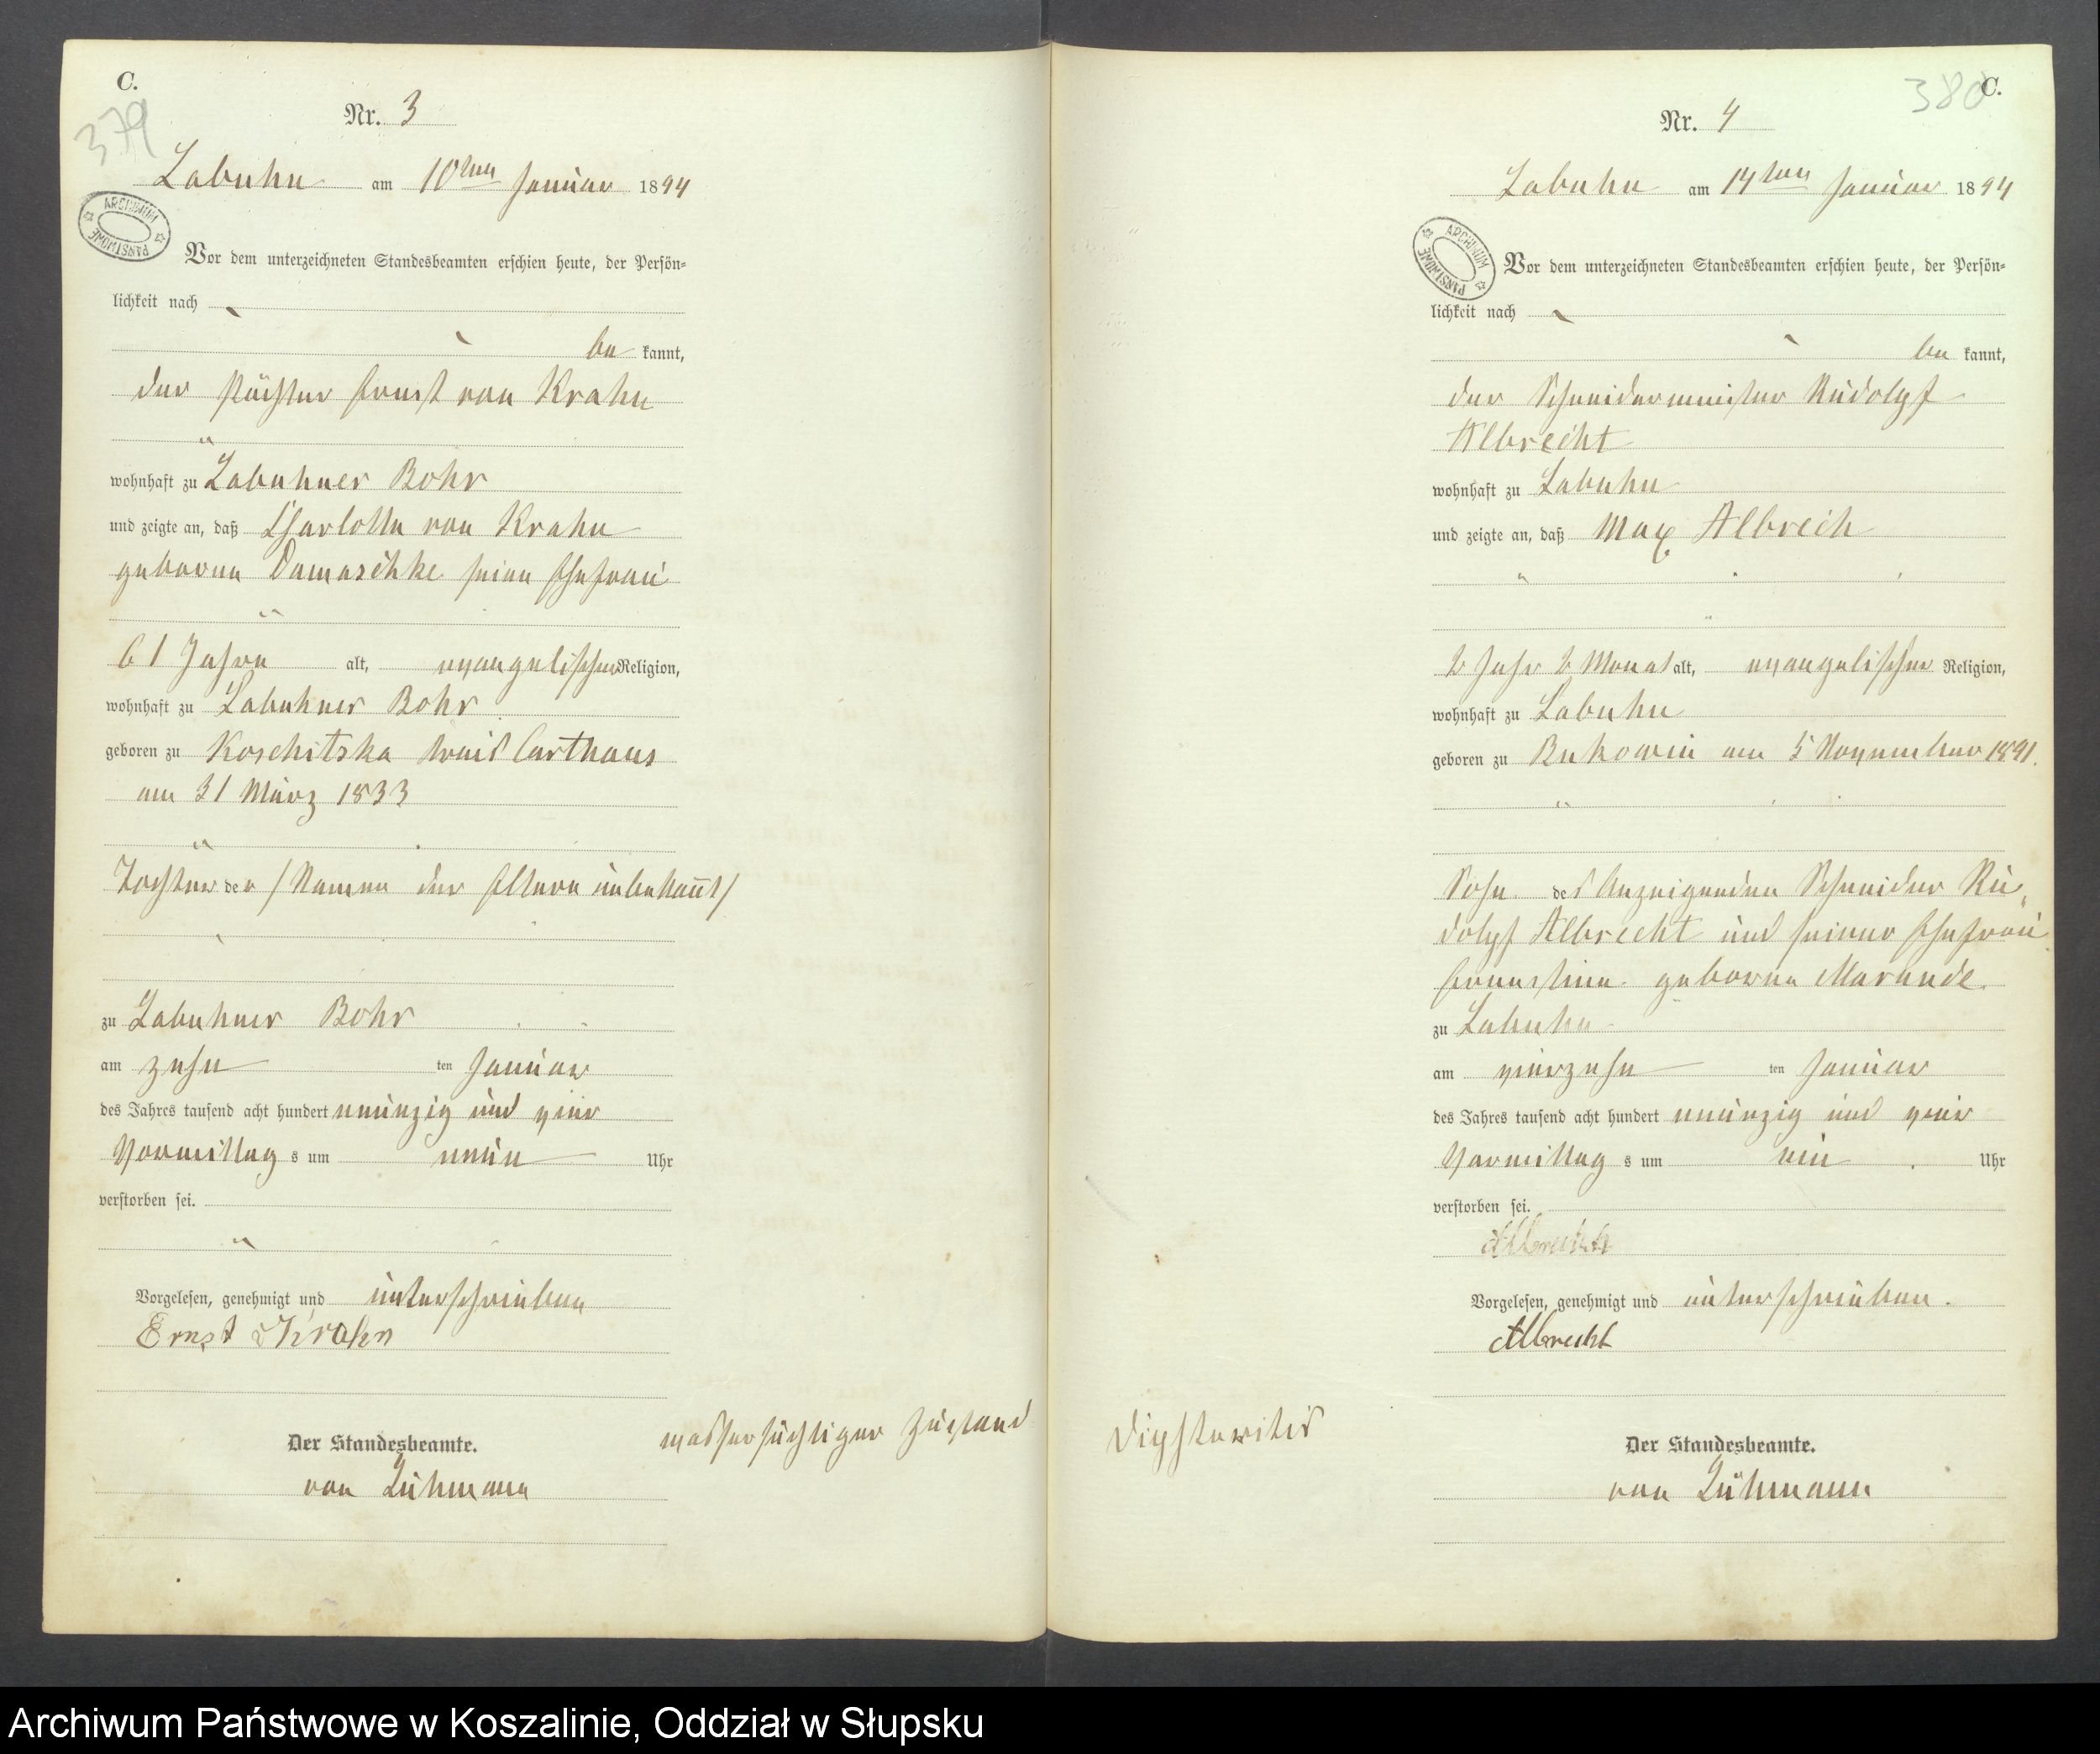 C.
379
Nr. 3
Labuhn am 10ten Januar 1894
ARCHIWUM PAŃSTWOWE
Vor dem unterzeichneten Standesbeamten erschien heute, der Persön-
lichkeit nach
be kannt,
der Pächter Ernst von Krahn
wohnhaft zu Labuhner Bohr
und zeigte an, daß Charlotte von Krahn
geborne Damaschke seine Ehefrau
61 Jahre alt, evangelischer Religion,
wohnhaft zu Labuhner Bohr
geboren zu Koschitska Kreis Carthaus
am 31 März 1833
Tochter der /Namen der Eltern unbekannt/
zu Labuhner Bohr
am zehn ten Januar
des Jahres tausend acht hundert neunzig und vier
Vormittag s um neun Uhr
verstorben sei.
Vorgelesen, genehmigt und unterschrieben
Ernst v Krahn
Der Standesbeamte.
von Lühmann
wassersüchtiger Zustand
380
C.
Nr. 4
Labuhn am 14ten Januar 1894
ARCHIWUM PAŃSTWOWE
Vor dem unterzeichneten Standesbeamten erschien heute, der Persön-
lichkeit nach
be kannt,
der Schneidermeister Rudolpf
Albrecht
wohnhaft zu Labuhn
und zeigte an, daß Max Albrech
2 Jahr 2 Monat alt, evangelischer Religion,
wohnhaft zu Labuhn
geboren zu Bukowin am 5 November 1891.
Sohn des Anzeigenden Schneider Ru
dolpf Albrecht und seiner Ehefrau
Ernestine geborne Marunde.
zu Labuhn
am vierzehn ten Januar
des Jahres tausend acht hundert neunzig und vier
Vormittag s um ein Uhr
verstorben sei.
Albrecht
Vorgelesen, genehmigt und unterschrieben.
Albrecht
Der Standesbeamte.
von Lühmann
Diphteritis
Archiwum Państwowe w Koszalinie, Oddział w Słupsku